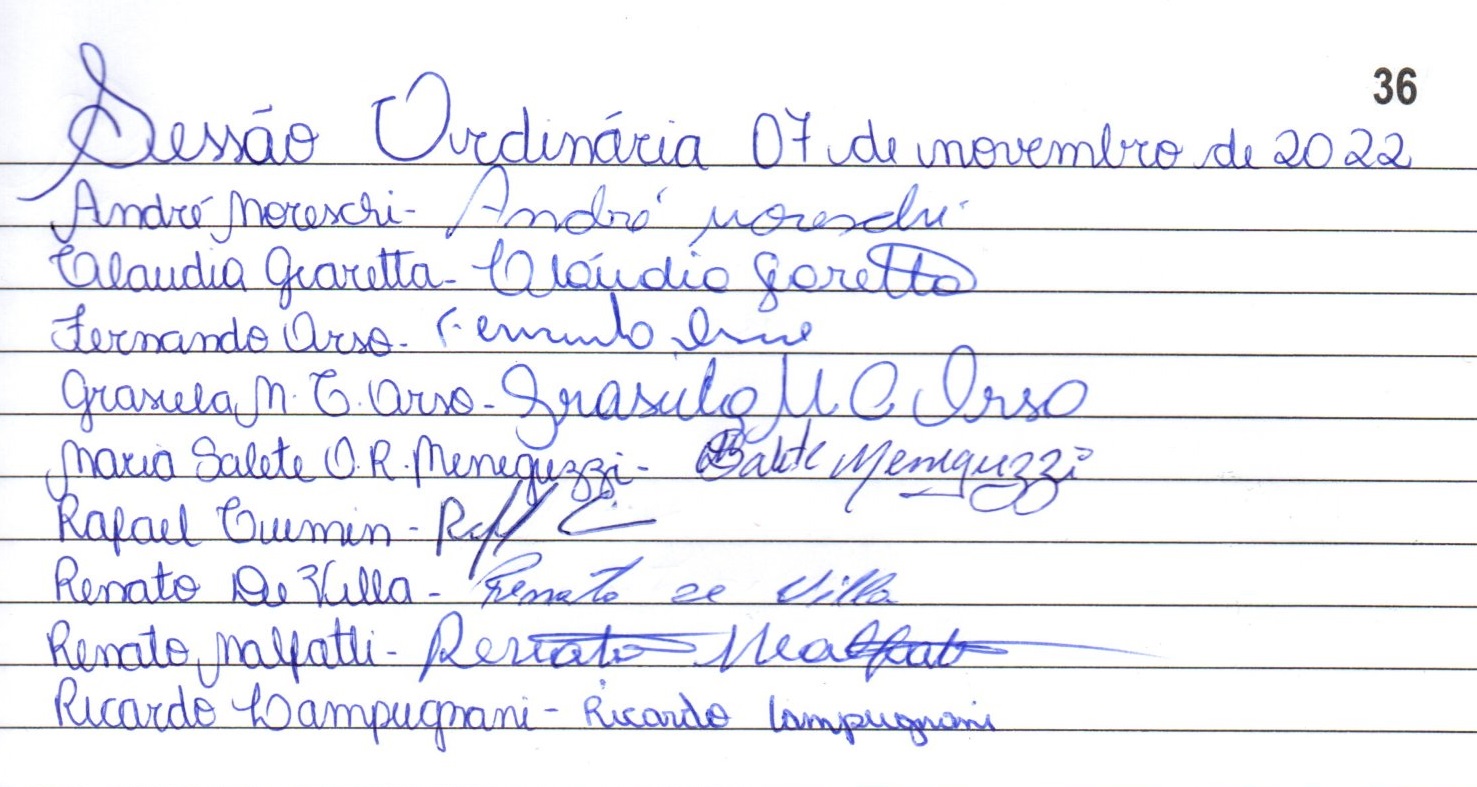 36
Sessão Ordinária 07 de novembro de 2022
André Moreschi - André Moreschi
Claudia Giaretta - Cláudia Giaretta
Fernando Orso - Fernando Orso
Grasiela M. C. Orso - Grasiela M C Orso
Maria Salete O. R. Meneguzzi - Salete Meneguzzi
Rafael -
Renato De Villa - Renato de Villa
Renato Malfatti - Renato Malfatti
Ricardo Lampugnani - Ricardo Lampugnani